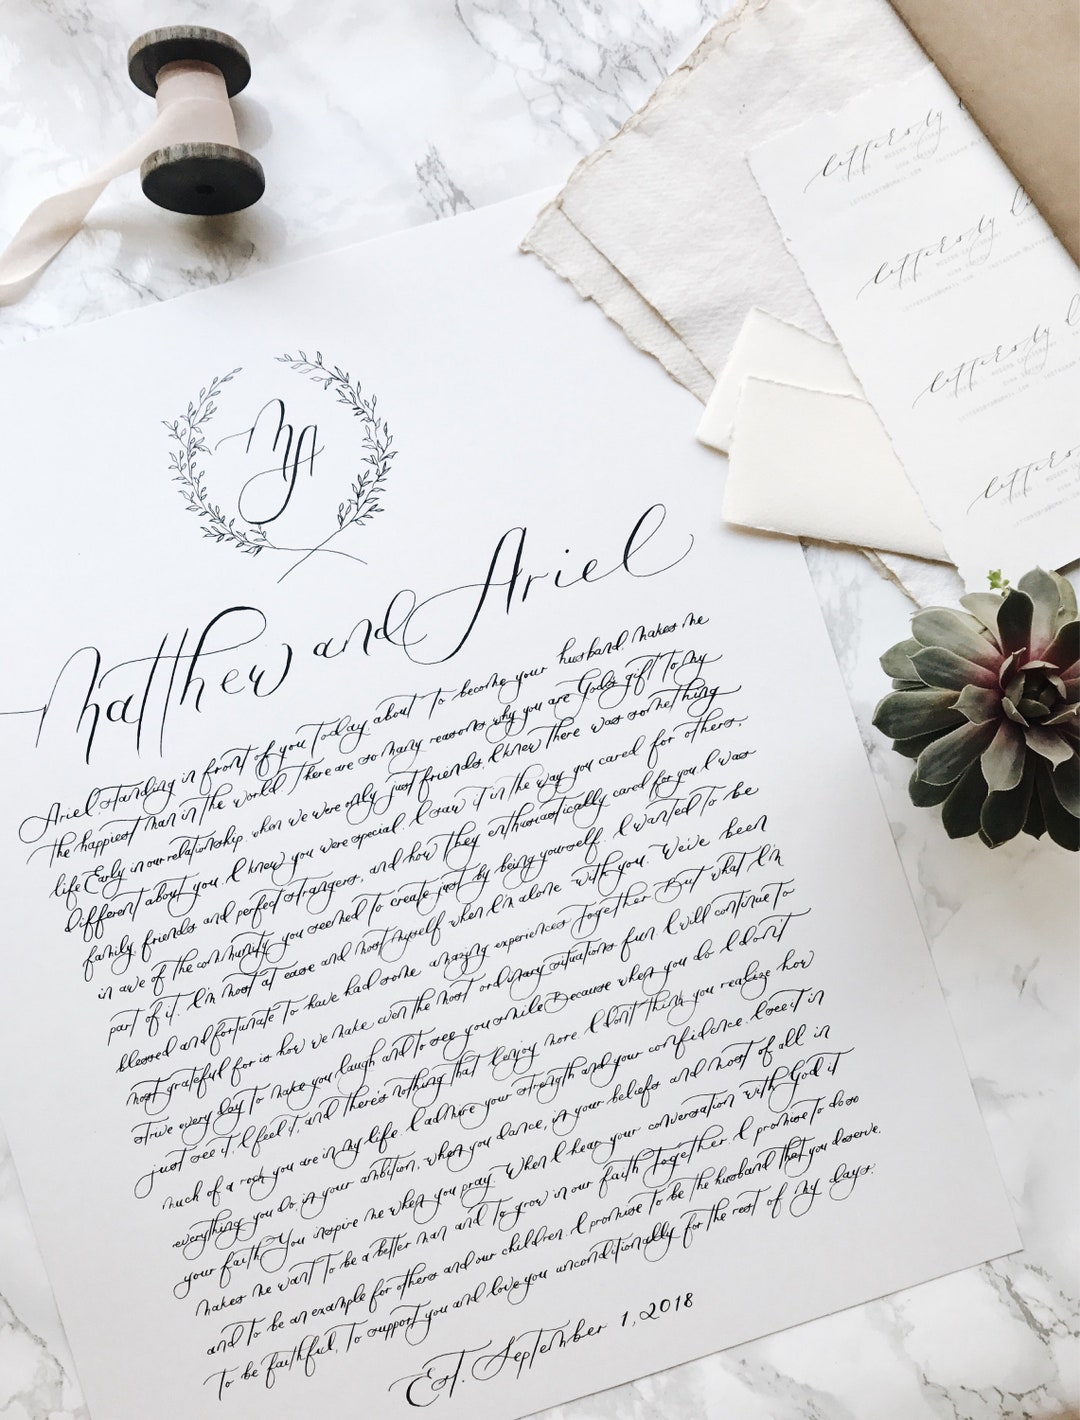 MA
Matthew and Ariel
Ariel, standing in front of you today about to become your husband, makes me
the happiest man in the world. There are so many reasons why you are God's gift to my
life. Early in our relationship, when we were only just friends, I knew there was something
different about you. I knew you were special. I saw it in the way you cared for others,
family, friends and perfect strangers, and how they enthusiastically cared for you. I was
in awe of the community you seemed to create just by being yourself. I wanted to be
part of it. I'm most at ease and most myself when I'm alone with you. We've been
blessed and fortunate to have had some amazing experiences together. But what I'm
most grateful for is how we make even the most ordinary situations fun. I will continue to
strive every day to make you laugh and to see you smile. Because when you do I don't
just see it, I feel it, and there's nothing that I enjoy more. I don't think you realize how
much of a rock you are in my life. I admire your strength and your confidence. I see it in
everything you do, in your ambition, when you dance, in your beliefs and most of all in
your faith. You inspire me when you pray. When I hear your conversation with God it
makes me want to be a better man and to grow in our faith together. I promise to do so
and to be an example for others and our children. I promise to be the husband that you deserve,
to be faithful, to support you and love you unconditionally for the rest of my days.
Est. September 1, 2018